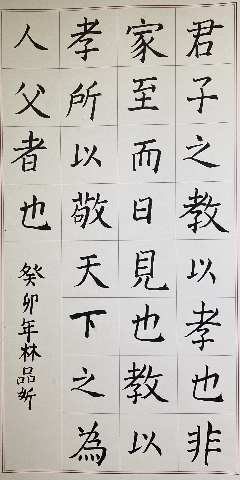 君子之教以孝也非
家至而日見也教以
孝所以敬天下之為
人父者也
癸卯年林品妡